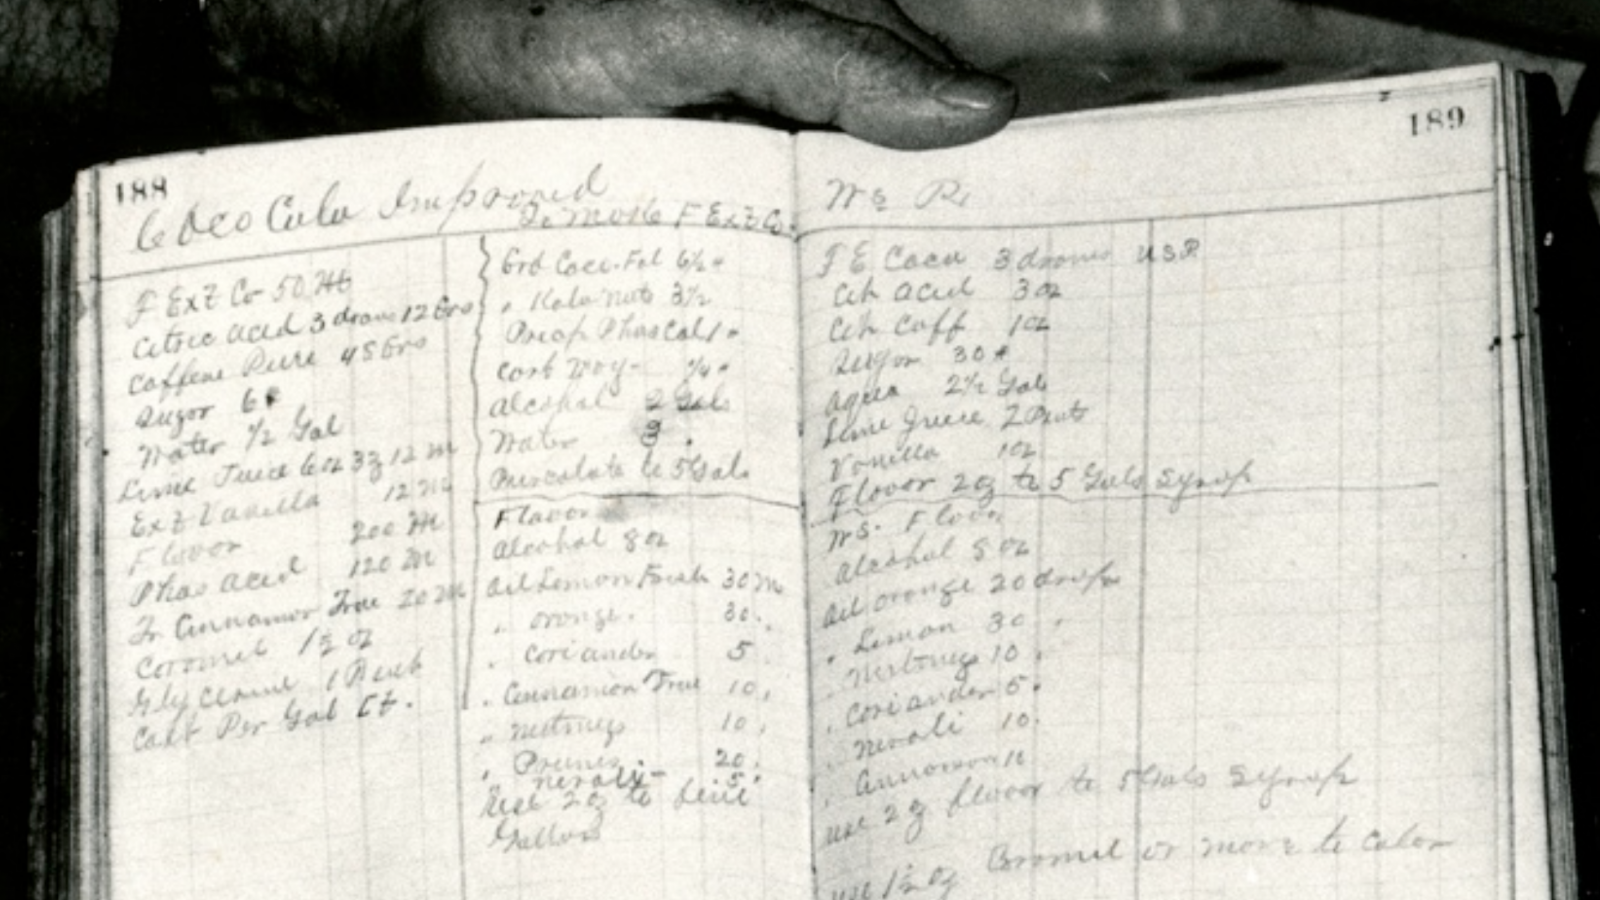 188
Coco Cola Improved
F Ext Co 50 M
Citric Acid 3 drams 12 Grs
Caffene Pure 45 Grs
Sugar 6 #
Water ½ Gal
Lime Juice 6 oz 3 ʒ 12 m
Ext Vanilla 12 M
Flavor 200 M
Phos Acid 120 M
Tr Cinnamon True 20 M
Caramel 1½ oz
Glycerine
Cost Per Gal
To Make F Ext Co.
Grd Coca Fol 6½ "
" Kola Nuts 3½
Precip Phos Cal 1 "
Carb Mag - ¼ "
Alcohol 2 Gals
Water 3 "
Percolate to 5 Gals
Flavor
Alcohol 8 oz
Oil Lemon Fresh 30 M
" orange " 30 "
" coriander 5
" Cinnamon True 10 "
" Nutmegs 10 "
" Prunes 20 "
" neroli - 5 "
Use 2 ʒ to five
Gallons
189
F E Coca 3 drams USP
Cit Acid 3 oz
Cit Caff 1 oz
Sugar 30 #
Aqua 2½ Gals
Lime Juice 2 Pints
Vanilla 1 oz
Flavor 2 ʒ to 5 Gals Syrup
Flavor
Alcohol 8 oz
Oil orange 20 drops
" Lemon 30 "
" Nutmegs 10 "
" Coriander 5 "
" Neroli 10 "
" Cinnamon
use 2 ʒ flavor to 5 Gals Syrup
use 1½ oz or more to color